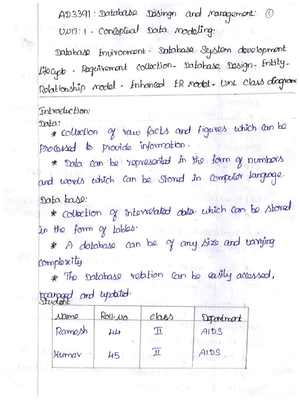 AD3391: Database Desingn and management: ①
UNIT: 1 - Conceptual Data modeling.
Database Environment - Database System development
lifecycle - Requirement collection - Database Design - Entity -
Relationship model - Enhanced ER model - UML class diagram
Introduction:
Data:
* Collection of raw facts and figures which can be
Processed to provide information.
* Data can be represented in the form of numbers
and words which can be Stored in Computer language.
Data base:
* Collection of interrelated data which can be stored
in the form of tables.
* A database can be of any size and varying
complexity
* The Database relation can be easily accessed,
managed and updated.
Student
Name Roll-No class Department
Ramesh 44 II AIDS
Kumar 45 II AIDS